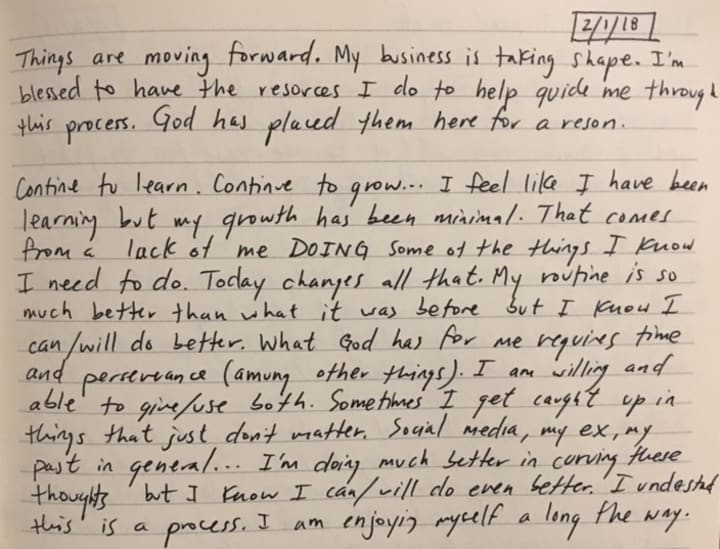 2/1/18
Things are moving forward. My business is taking shape. I'm
blessed to have the resorces I do to help guide me through
this process. God has placed them here for a reson.
Contine to learn. Continue to grow... I feel like I have been
learning but my growth has been minimal. That comes
from a lack of me DOING some of the things I know
I need to do. Today changes all that. My routine is so
much better than what it was before but I know I
can/will do better. What God has for me requires time
and perserverance (among other things). I am willing and
able to give/use both. Sometimes I get caught up in
things that just don't matter. Social media, my ex, my
past in general... I'm doing much better in curving these
thoughts but I know I can/will do even better. I undestad
this is a process. I am enjoying myself a long the way.